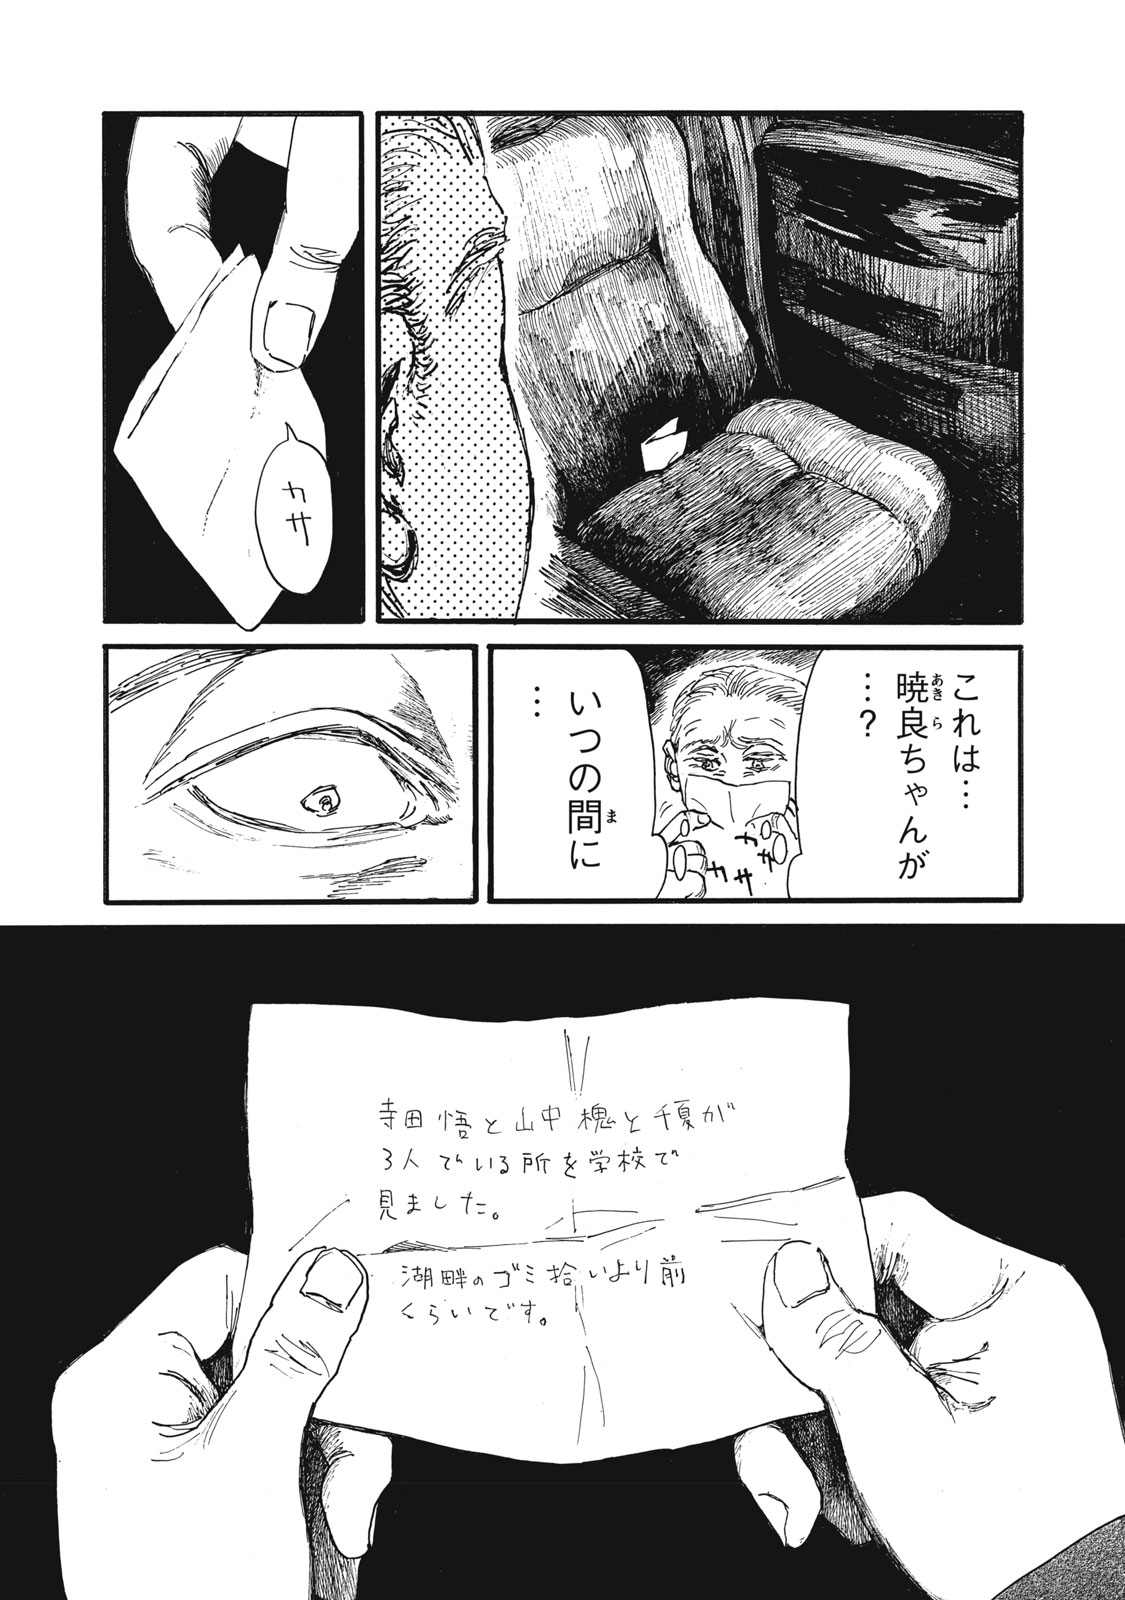 カサ
これは…
暁良ちゃんが
…?
あきら
いつの間に
…
ま
カサ
カサ
寺田 悟と山中 槐と千夏が
3人でいる所を学校で
見ました。
湖畔のゴミ拾いより前
くらいです。